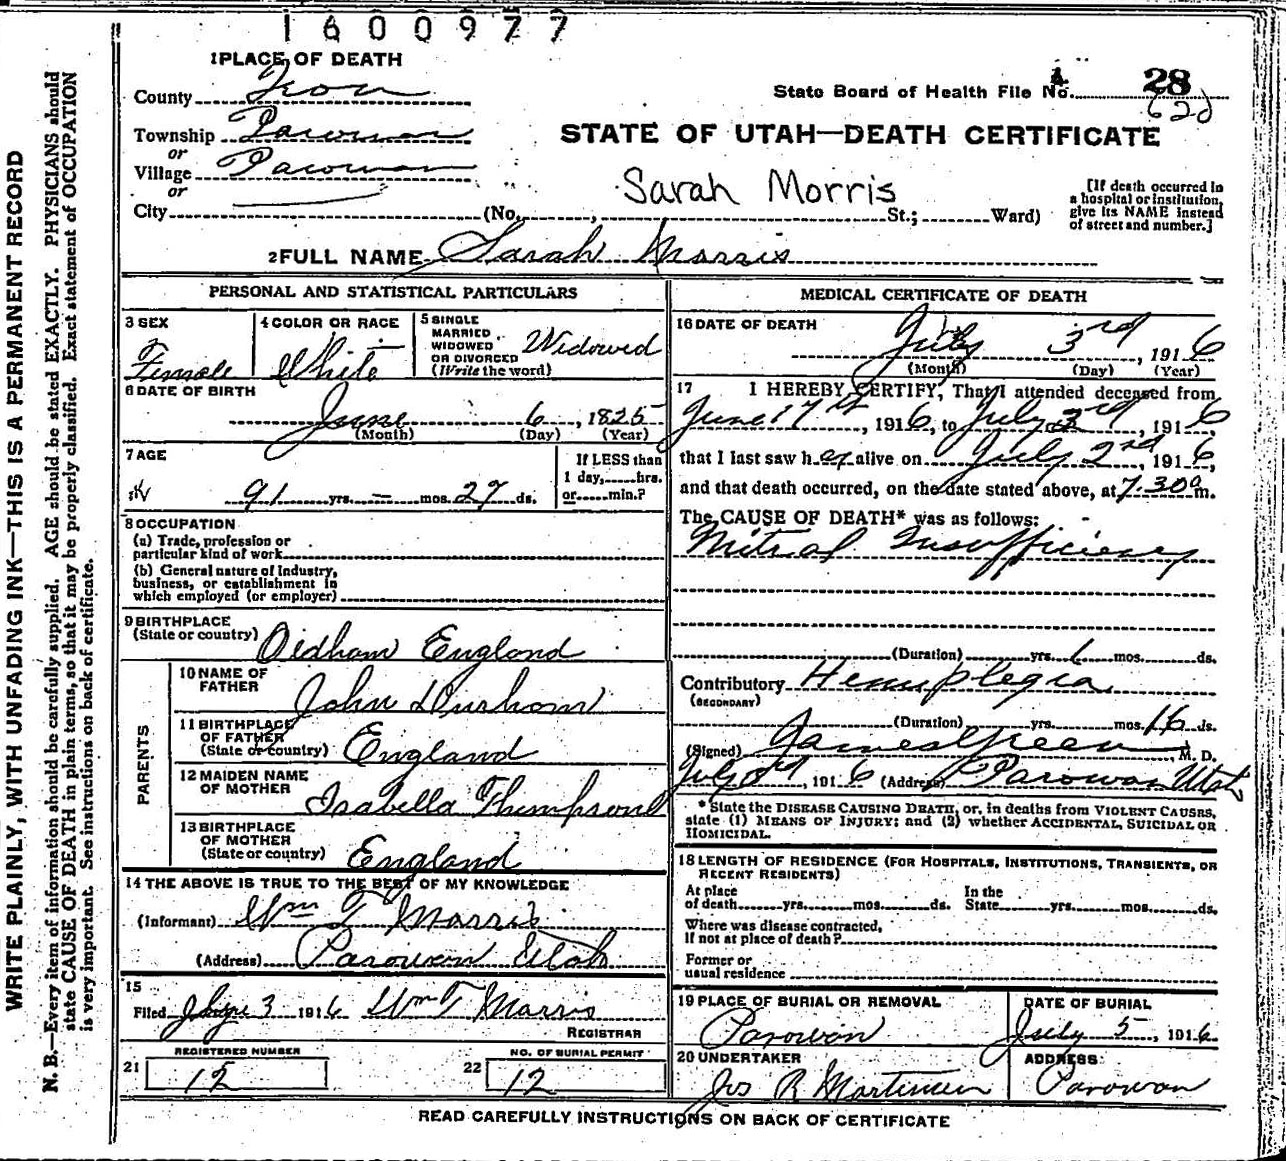 1600977
1 PLACE OF DEATH
County Iron
State Board of Health File No. 28
620
Township Parowan
or
STATE OF UTAH—DEATH CERTIFICATE
Village Parowan
or
Sarah Morris
[If death occurred in
a hospital or institution,
give its NAME instead
of street and number.]
City (No. , St.; Ward)
2 FULL NAME Sarah Morris
PERSONAL AND STATISTICAL PARTICULARS
3 SEX
Female
4 COLOR OR RACE
White
5 SINGLE
MARRIED
WIDOWED
OR DIVORCED
(Write the word)
Widowed
6 DATE OF BIRTH
June 6, 1825
(Month) (Day) (Year)
7 AGE
91 yrs. — mos. 27 ds.
If LESS than
1 day, hrs.
or min.?
8 OCCUPATION
(a) Trade, profession or
particular kind of work
(b) General nature of Industry,
business, or establishment in
which employed (or employer)
9 BIRTHPLACE
(State or country) Oldham England
PARENTS
10 NAME OF
FATHER John Durham
11 BIRTHPLACE
OF FATHER
(State or country) England
12 MAIDEN NAME
OF MOTHER Isabella Thompson
13 BIRTHPLACE
OF MOTHER
(State or country) England
14 THE ABOVE IS TRUE TO THE BEST OF MY KNOWLEDGE
(Informant) Wm T Morris
(Address) Parowan Utah
15
Filed 3 1916 Wm T Morris
REGISTRAR
21 REGISTERED NUMBER
12
22 NO. OF BURIAL PERMIT
12
MEDICAL CERTIFICATE OF DEATH
16 DATE OF DEATH
July 3rd, 1916
(Month) (Day) (Year)
17 I HEREBY CERTIFY, That I attended deceased from
June 17th, 1916, to July 3rd, 1916
that I last saw her alive on July 2nd, 1916,
and that death occurred, on the date stated above, at 7.30 a m.
The CAUSE OF DEATH* was as follows:
Mitral Insufficiency
(Duration) yrs. 6 mos. ds.
Contributory Hemiplegia
(SECONDARY)
(Duration) yrs. mos. 16 ds.
(Signed) James Green, M. D.
July 3rd, 1916 (Address) Parowan Utah
* State the DISEASE CAUSING DEATH, or, in deaths from VIOLENT CAUSES,
state (1) MEANS OF INJURY; and (2) whether ACCIDENTAL, SUICIDAL OR
HOMICIDAL.
18 LENGTH OF RESIDENCE (FOR HOSPITALS, INSTITUTIONS, TRANSIENTS, OR
RECENT RESIDENTS)
At place
of death yrs. mos. ds.
In the
State yrs. mos. ds.
Where was disease contracted,
if not at place of death?
Former or
usual residence
19 PLACE OF BURIAL OR REMOVAL
Parowan
DATE OF BURIAL
July 5, 1916
20 UNDERTAKER
Jos R Mortensen
ADDRESS
Parowan
READ CAREFULLY INSTRUCTIONS ON BACK OF CERTIFICATE
WRITE PLAINLY, WITH UNFADING INK—THIS IS A PERMANENT RECORD
N. B.—Every item of information should be carefully supplied. AGE should be stated EXACTLY. PHYSICIANS should
state CAUSE OF DEATH in plain terms, so that it may be properly classified. Exact statement of OCCUPATION
is very important. See instructions on back of certificate.